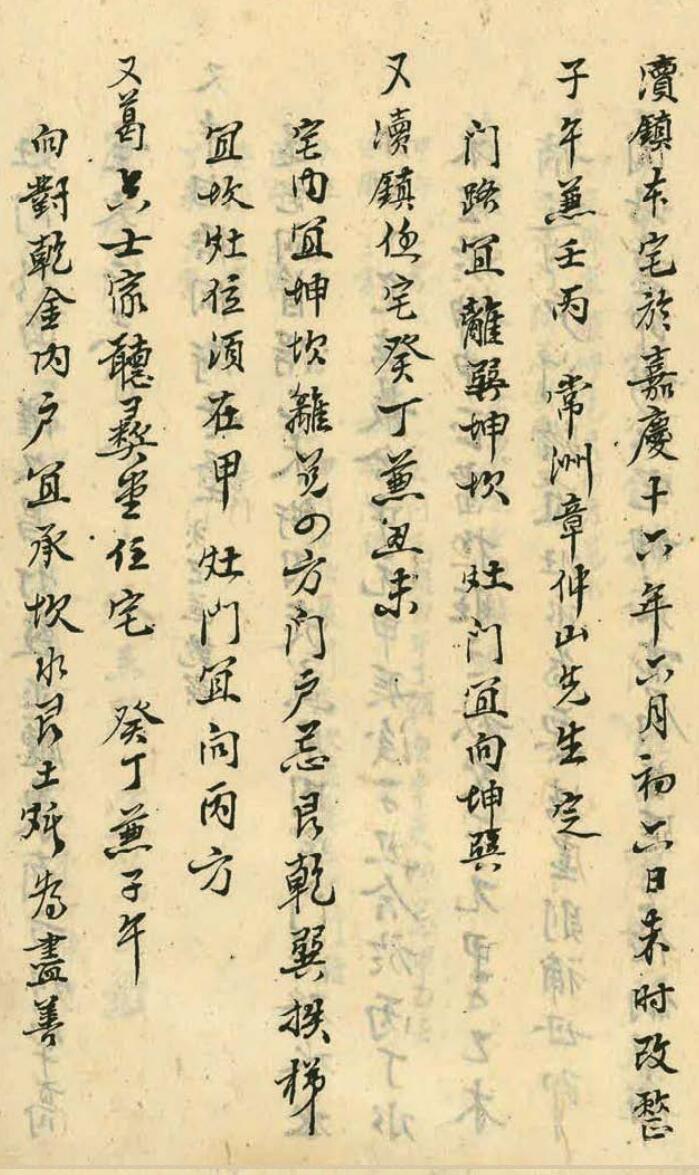 瀆鎮本宅於嘉慶十六年六月初六日未时改整
子午兼壬丙 常洲章仲山先生定
门路宜離巽坤坎 灶门宜向坤巽
又瀆鎮住宅癸丁兼丑未
宅内宜坤坎離兌四方门户忌艮乾巽扶梯
宜坎灶位須在甲 灶门宜向丙方
又葛 士家聽彛堂住宅 癸丁兼子午
向對乾金内户宜承坎水艮土 為盡善